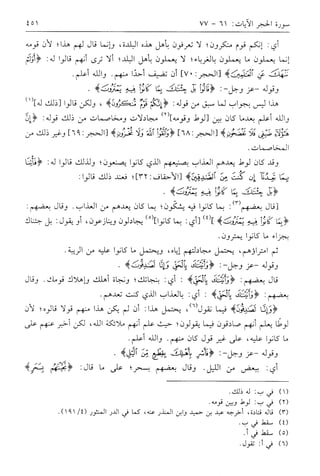 سورة الحجر الآيات: ٦١ - ٧٧
٤٥١
أي: إنكم قوم منكرون؛ لا تعرفون بأهل هذه البلدة، وإنما قال لهم هذا؛ لأن قومه
إنما يعملون ما يعملون بالغرباء؛ لا يعملون بأهل البلد؛ ألا ترى أنهم قالوا له: ﴿أَوَلَمْ
نَنْهَكَ عَنِ الْعَالَمِينَ﴾ [الحجر: ٧٠] أن تضيف أحدًا منهم. والله أعلم.
وقوله -عز وجل-: ﴿قَالُوا بَلْ جِئْنَاكَ بِمَا كَانُوا فِيهِ يَمْتَرُونَ﴾.
هذا ليس بجواب لما سبق من قوله: ﴿إِنَّكُمْ قَوْمٌ مُنْكَرُونَ﴾، ولكن قالوا [ذلك له](١)
والله أعلم بعدما كان بين [لوط وقومه](٢) مجادلات ومخاصمات من ذلك قوله: ﴿إِنَّ
هَؤُلَاءِ ضَيْفِي فَلَا تَفْضَحُونِ﴾ [الحجر: ٦٨] ﴿وَاتَّقُوا اللَّهَ وَلَا تُخْزُونِ﴾ [الحجر: ٦٩] وغير ذلك من
المخاصمات.
وقد كان لوط يعدهم العذاب بصنيعهم الذي كانوا يصنعون؛ ولذلك قالوا له: ﴿فَأْتِنَا
بِمَا تَعِدُنَا إِنْ كُنْتَ مِنَ الصَّادِقِينَ﴾ [الأحقاف: ٣٢]؛ فعند ذلك قالوا:
﴿بَلْ جِئْنَاكَ بِمَا كَانُوا فِيهِ يَمْتَرُونَ﴾.
[قال بعضهم(٣): بما كانوا فيه يشكون؛ بما كان يعدهم من العذاب. وقال بعضهم:
﴿بِمَا كَانُوا فِيهِ يَمْتَرُونَ﴾](٤) [أي: بما كانوا](٥) يجادلون وينازعون، أو يقول: بل جئناك
بجزاء ما كانوا يمترون.
ثم امتراؤهم، يحتمل مجادلتهم إياه، ويحتمل ما كانوا عليه من الريبة.
وقوله -عز وجل-: ﴿وَأَتَيْنَاكَ بِالْحَقِّ وَإِنَّا لَصَادِقُونَ﴾.
قال بعضهم: ﴿وَأَتَيْنَاكَ بِالْحَقِّ﴾: أي: بنجاتك؛ ونجاة أهلك وإهلاك قومك. وقال
بعضهم: ﴿وَأَتَيْنَاكَ بِالْحَقِّ﴾: أي: بالعذاب الذي كنت تعدهم.
﴿وَإِنَّا لَصَادِقُونَ﴾ فيما نقول(٦)، يحتمل هذا: أن لم يكن هذا منهم قولا قالوه؛ لأن
لوطًا يعلم أنهم صادقون فيما يقولون؛ حيث علم أنهم ملائكة الله، لكن أخبر عنهم على
ما كانوا عليه، على غير قول كان منهم. والله أعلم.
وقوله -عز وجل-: ﴿فَأَسْرِ بِأَهْلِكَ بِقِطْعٍ مِنَ اللَّيْلِ﴾.
أي: ببعض من الليل. وقال بعضهم بسحر؛ على ما قال: ﴿نَجَّيْنَاهُمْ بِسَحَرٍ﴾
(١) في ب: له ذلك.
(٢) في ب: لوط وبين قومه.
(٣) قاله قتادة، أخرجه عبد بن حميد وابن المنذر عنه، كما في الدر المنثور (١٩١/٤).
(٤) سقط في ب.
(٥) سقط في أ.
(٦) في أ: تقول.